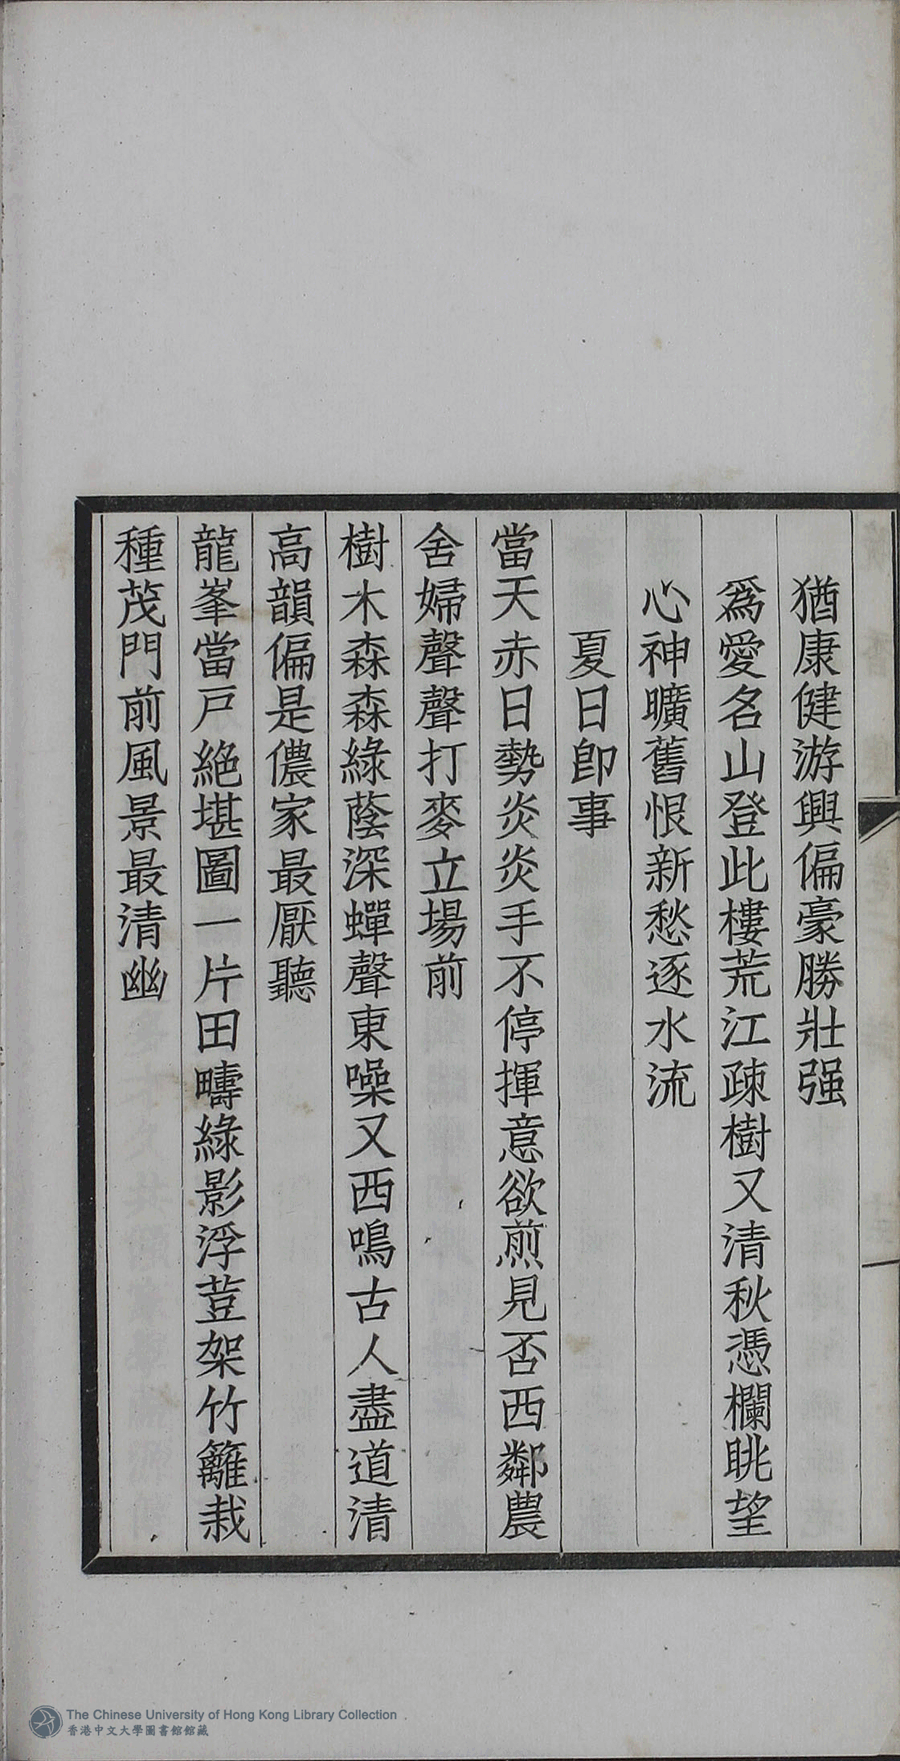 猶康健游興偏豪勝壯强
爲愛名山登此樓荒江疎樹又清秋憑欄眺望
心神曠舊恨新愁逐水流
夏日卽事
當天赤日勢炎炎手不停揮意欲煎見否西鄰農
舍婦聲聲打麥立場前
樹木森森綠蔭深蟬聲東噪又西鳴古人盡道清
高韻偏是儂家最厭聽
龍峯當戸絶堪圖一片田疇綠影浮荳架竹籬栽
種茂門前風景最清幽
The Chinese University of Hong Kong Library Collection
香港中文大學圖書館館藏